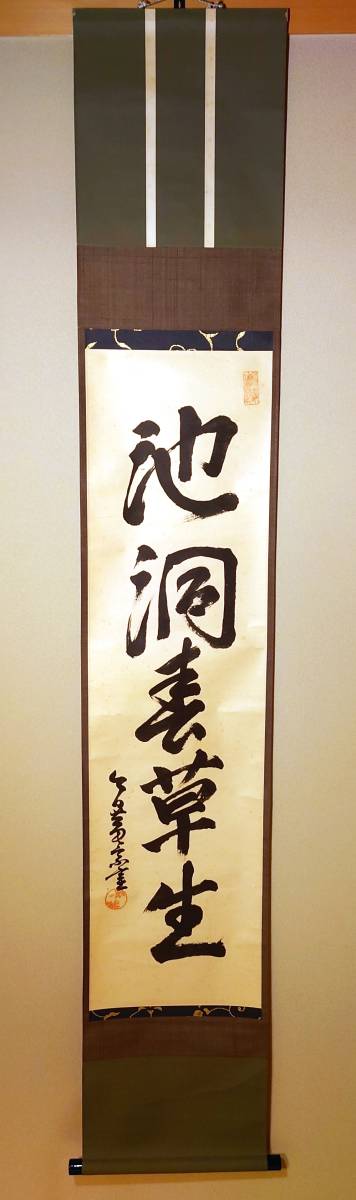 池洞春草生